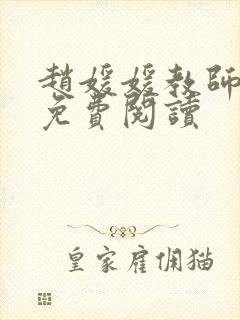 趙媛媛教師
免費閱讀
皇家雇佣猫